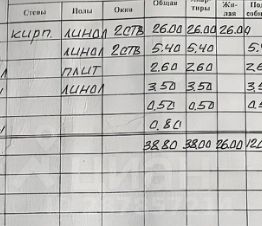 Стены Полы Окна Общая тиры Жи-лая
кирп. линол 2 ств 26.00 26.00 26.00
линол 2 ств 5.40 5.40
плит 2.60 2.60
линол 3,50 3,50
0,50 0,50
0.80
38.80 38.00 26.00